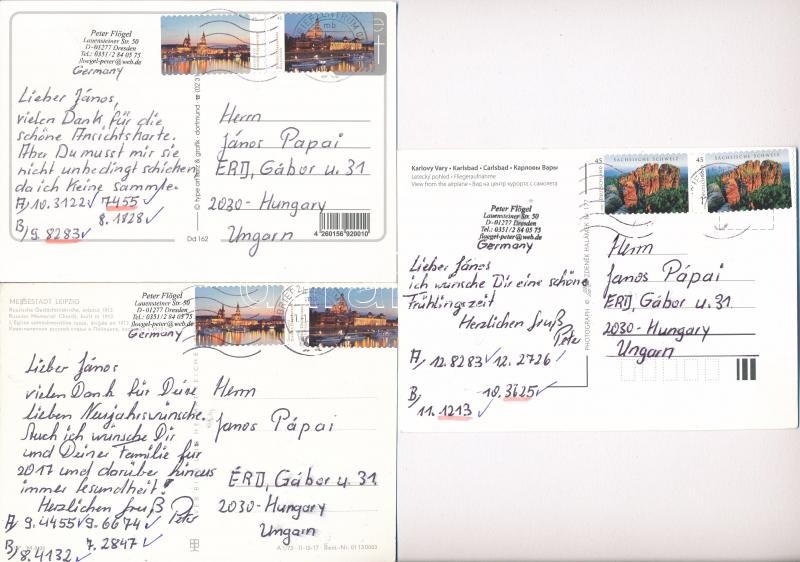 Peter Flögel
Lauensteiner Str. 50
D-01277 Dresden
Tel.: 0351/2 84 05 75
floegel-peter@web.de
Germany
Lieber János,
vielen Dank für die
schöne Ansichtskarte.
Aber Du musst mir sie
nicht unbedingt schicken,
da ich keine Sammle.
A) 10.3122 ✓ 7455 ✓
8.1828 ✓
B) 9.8283 ✓
Herrn
János Papai
ÉRD, Gábor u. 31
2030-Hungary
Ungarn
Dd 162
4 260156 920010
MESSESTADT LEIPZIG
Russische Gedächtniskirche, erbaut 1913
Russian Memorial Church, built in 1913
Peter Flögel
Lauensteiner Str. 50
D-01277 Dresden
Tel.: 0351/2 84 05 75
floegel-peter@web.de
Germany
Lieber János
vielen Dank für Deine
lieben Neujahrswünsche.
Auch ich wünsche Dir
und Deiner Familie für
2017 und darüber hinaus
immer Gesundheit!
Herzlichen Gruß Peter
A) 9.4455 ✓ 9.6674 ✓
7.2847 ✓
B) 8.4132 ✓
Herrn
Janos Pápai
ÉRD, Gábor u. 31
2030-Hungary
Ungarn
A 1/73 · 11-15-17 · Best.-Nr. 01130003
Karlovy Vary • Karlsbad • Carlsbad • Карловы Вары
Letecký pohled • Fliegeraufnahme
View from the airplane • Вид на центр курорта с самолета
45 SÄCHSISCHE SCHWEIZ
45 SÄCHSISCHE SCHWEIZ
Peter Flögel
Lauensteiner Str. 50
D-01277 Dresden
Tel.: 0351/2 84 05 75
floegel-peter@web.de
Germany
Lieber János
ich wünsche Dir eine schöne
Frühlingszeit
Herzlichen Gruß
Peter
A) 12.8283 ✓ 12.2726 ✓
10.3625 ✓
B) 11.1213 ✓
Herrn
Janos Pápai
ÉRD, Gábor u. 31
2030-Hungary
Ungarn